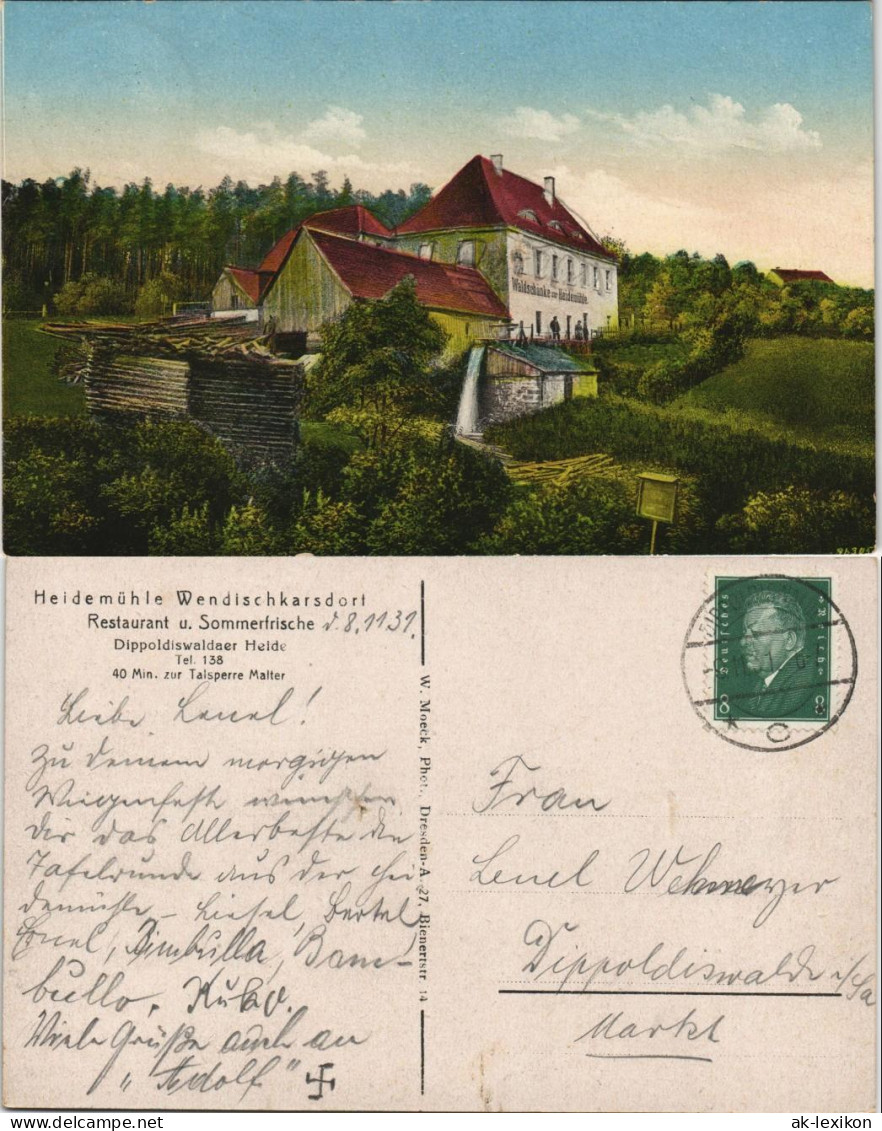 Waldschänke zur Heidemühle.
Heidemühle Wendischkarsdorf
Restaurant u. Sommerfrische d. 8.11.31.
Dippoldiswaldaer Heide
Tel. 138
40 Min. zur Talsperre Malter
Liebe Lenel!
Zu deinem morgigen
Wiegenfeste wünschen
dir das Allerbeste die
Tafelrunde aus der Hei
demühle – Liesel, Bertel
Bimbulla, Bam-
bullo,
Viele Grüße auch an
„Adolf" 卐
W. Moeck, Phot., Dresden-A. 27, Bienertstr. 14
Deutsches Reich
8 8
* C *
Frau
Lenel Wekmeyer
Dippoldiswalde i/Sa
Markt
ak-lexikon